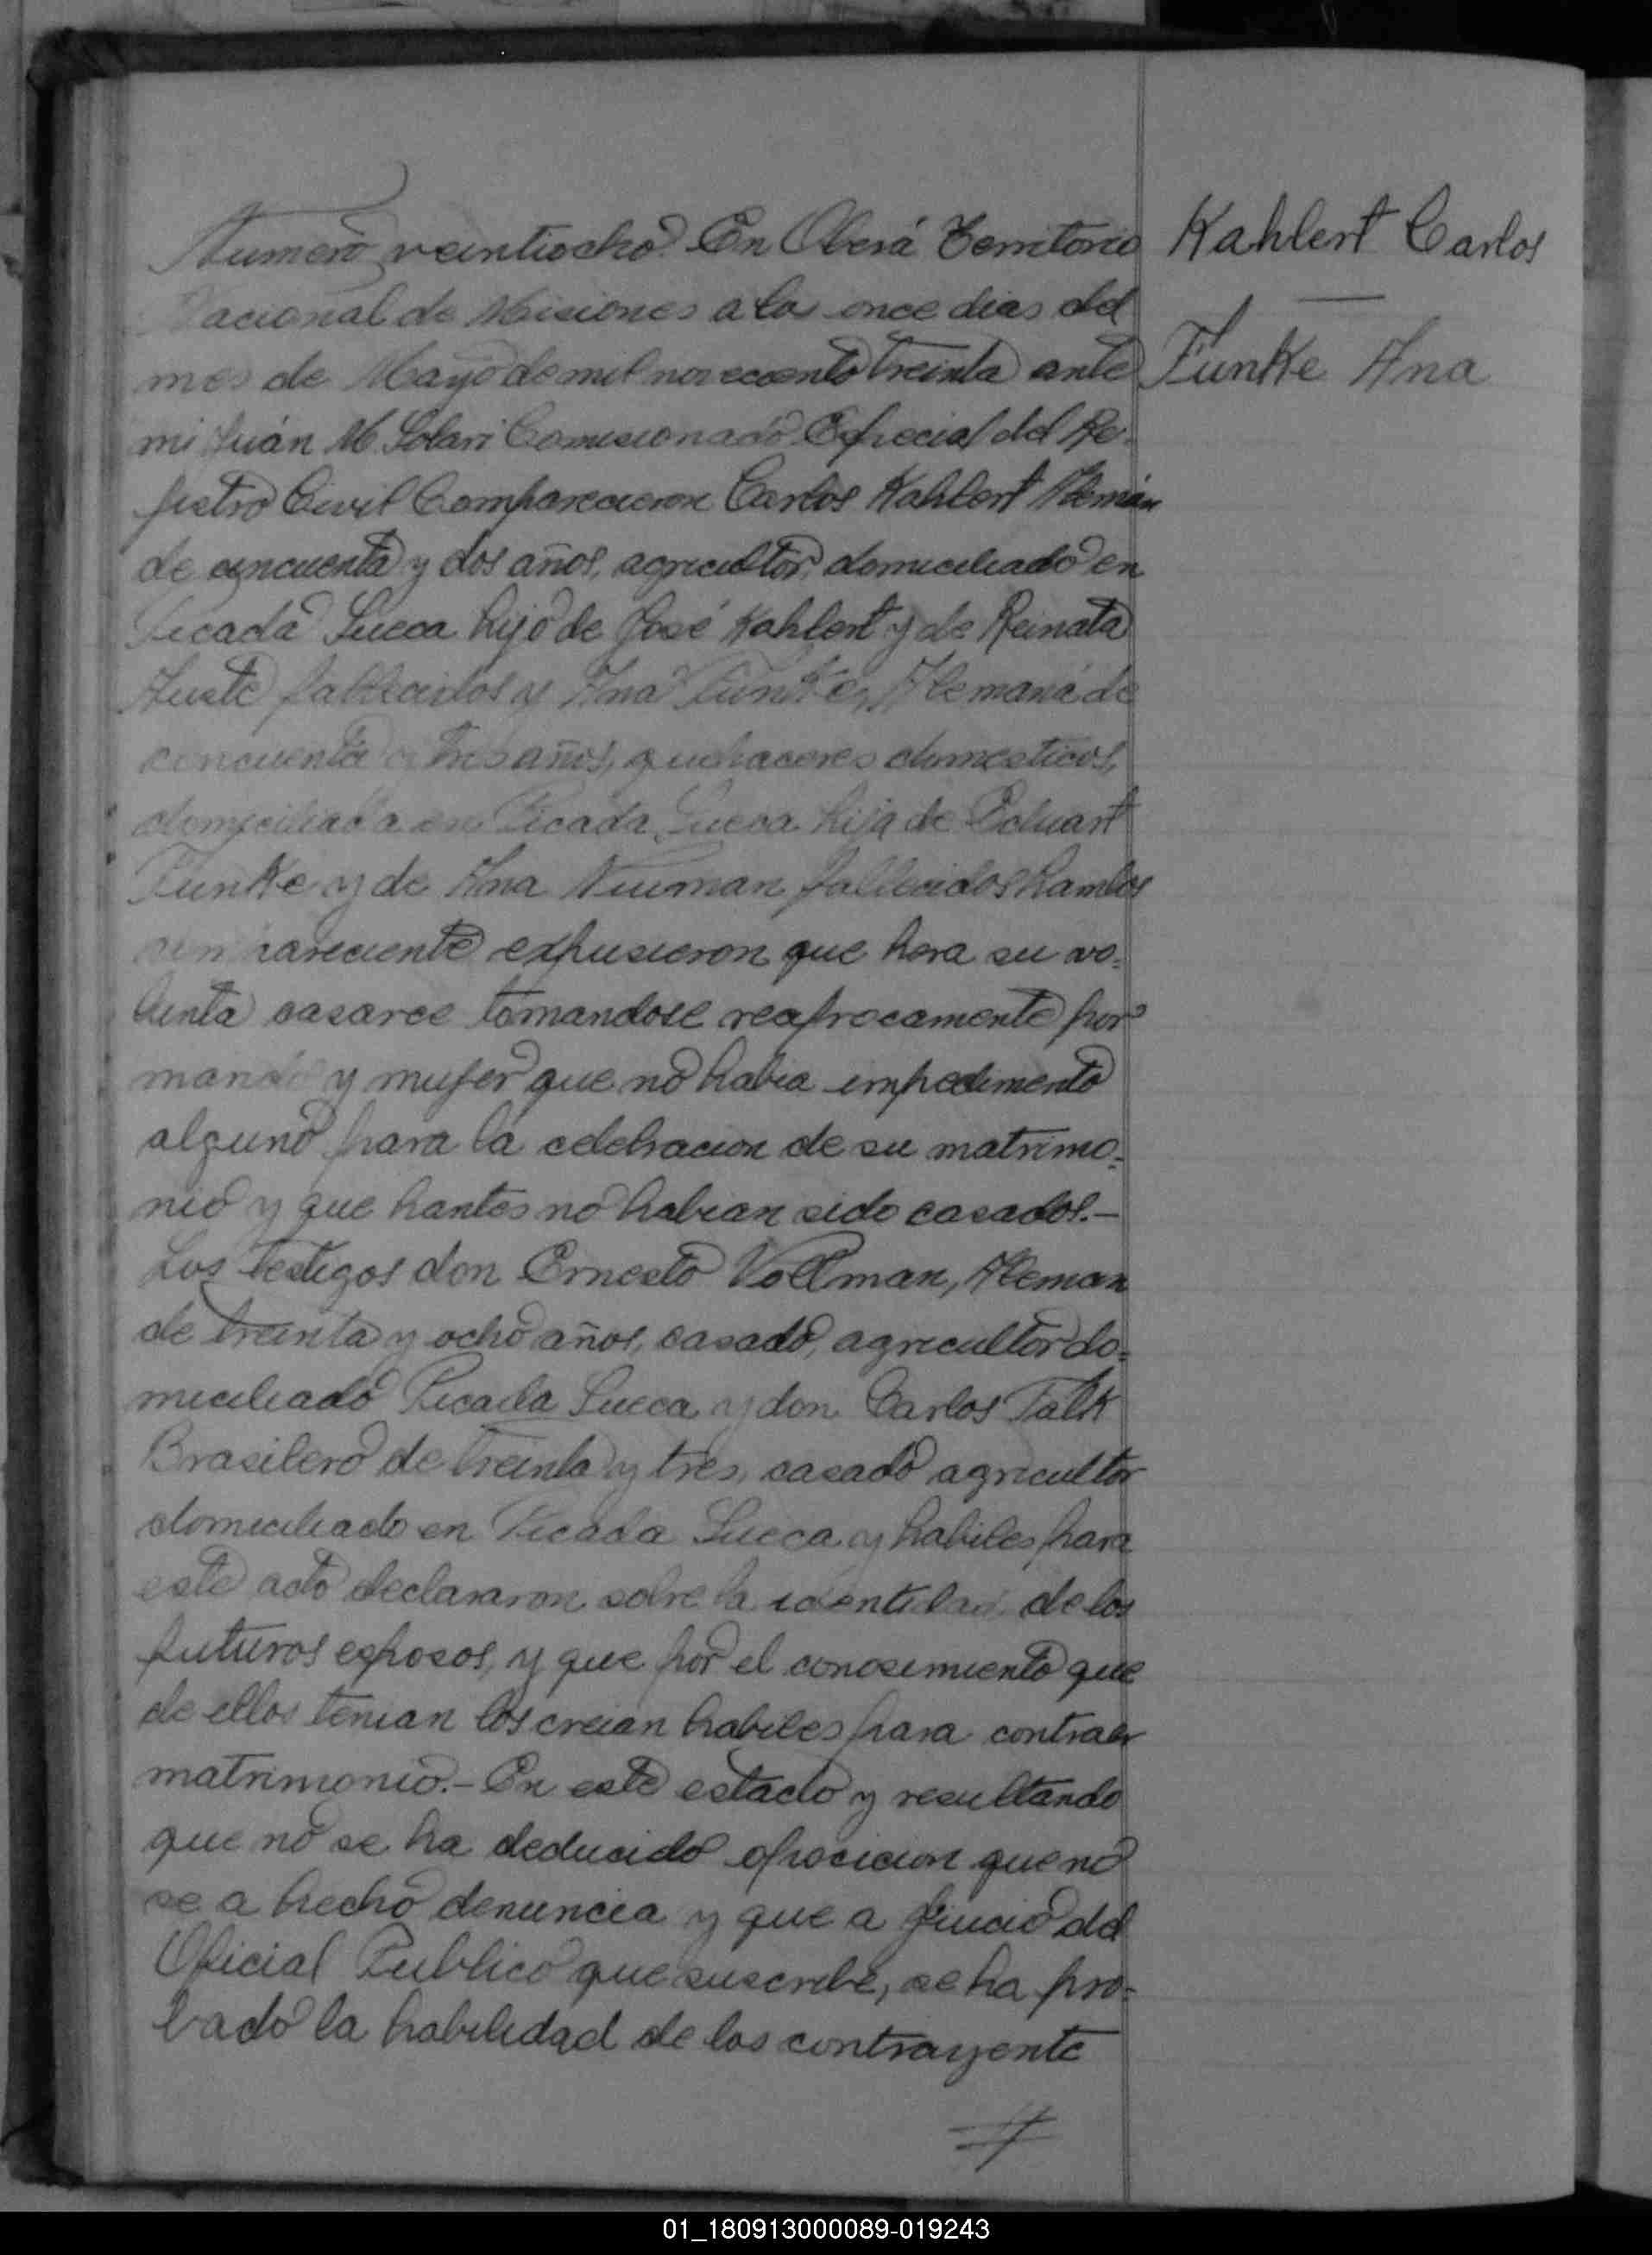 Numero veintiocho. En Oberá Territorio
Nacional de Misiones a los once dias del
mes de Mayo de mil novecento treinta ante
mi Juán M. Solari Comisionado Especial del Re-
jistro Civil Comparecieron Carlos Kahlert Alemán
de cincuenta y dos años, agricultor, domiciliado en
Picada Sueca hijo de José Kahlert y de Reinata
fallecidos y Ana Funke, Alemana de
cincuenta y tres años, quehaceres domesticos,
domiciliada en Picada Sueca hija de Eduart
Funke y de Ana Niuman fallecidos hambos
compareciente expusieron que hera su vo=
lunta casarce tomandose reciprocamente por
marido y mujer que no habia impedimento
alguno para la celebracion de su matrimo=
nio y que hantes no habian sido casados.—
Los testigos don Ernesto Vollman, Aleman
de treinta y ocho años, casado, agricultor do=
miciliado Picada Sueca y don Carlos Falk
Brasilero de treinta y tres, casado agricultor
domiciliado en Picada Sueca y habiles para
este acto declararon sobre la identidad de los
futuros esposos, y que por el conosimiento que
de ellos tenian los creian habiles para contraer
matrimonio.- En este estado y resultando
que no se ha deducido oposicion que no
se a hecho denuncia y que a juicio del
Oficial Publico que suscribe, se ha pro=
bado la habilidad de los contrayente
Kahlert Carlos
—
Funke Ana
01_180913000089-019243